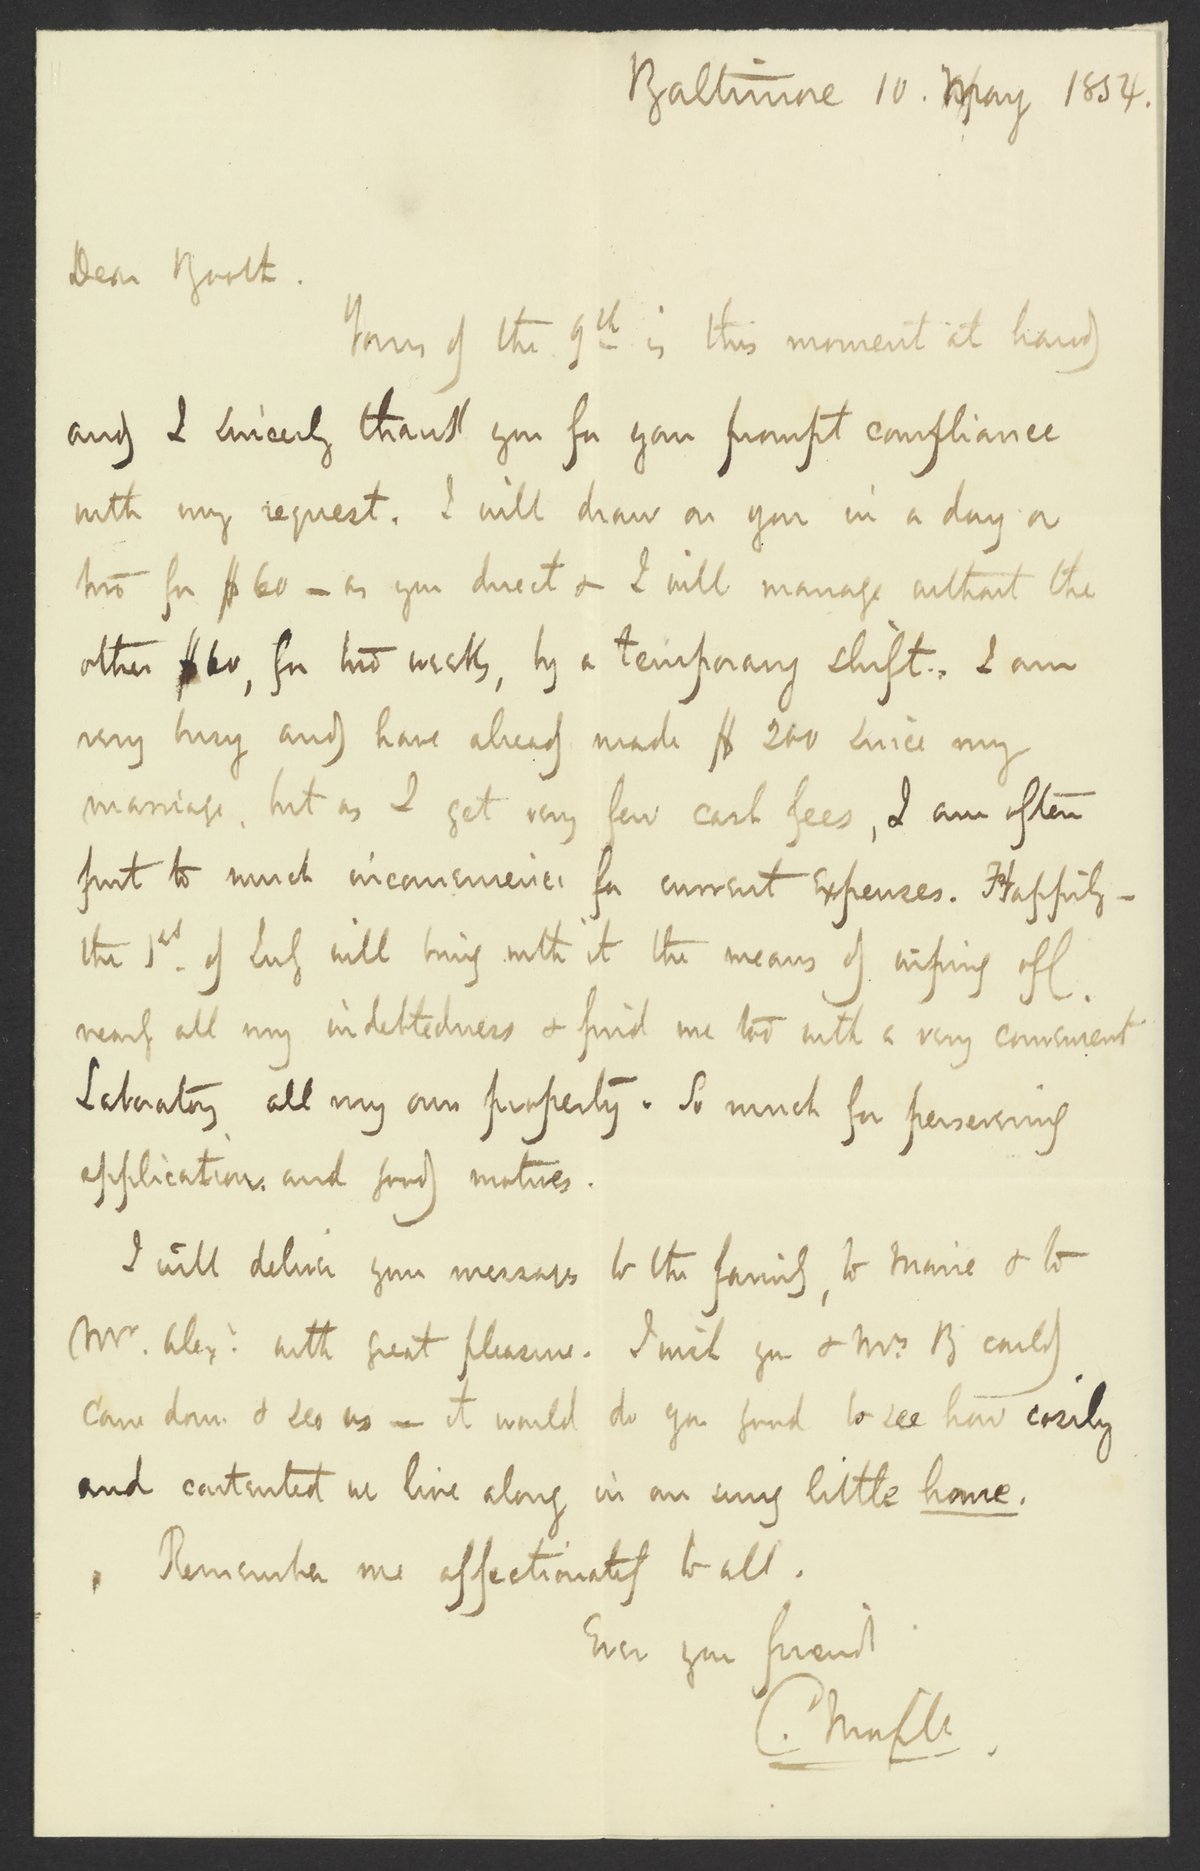 Baltimore 10. May 1854.
Dear Booth.
Yours of the 9th is this moment at hand
and I sincerely thank you for your prompt compliance
with my request. I will draw on you in a day or
two for $60 – as you direct & I will manage without the
other $60, for two weeks, by a temporary shift. I am
very busy and have already made $ 200 since my
marriage, but as I get very few cash fees, I am often
put to much inconvenience for current expenses. Happily –
the 1st. of July will bring with it the means of wiping off
nearly all my indebtedness & find me too with a very convenient
Laboratory all my own property. So much for persevering
application and good motives.
I will deliver your messages to the family, to Marie & to
Mr. Alexr. with great pleasure. I wish you & Mrs B could
come down & see us – it would do you good to see how cosily
and contented we live along in our snug little home.
Remember me affectionately to all.
Ever your friend
C.